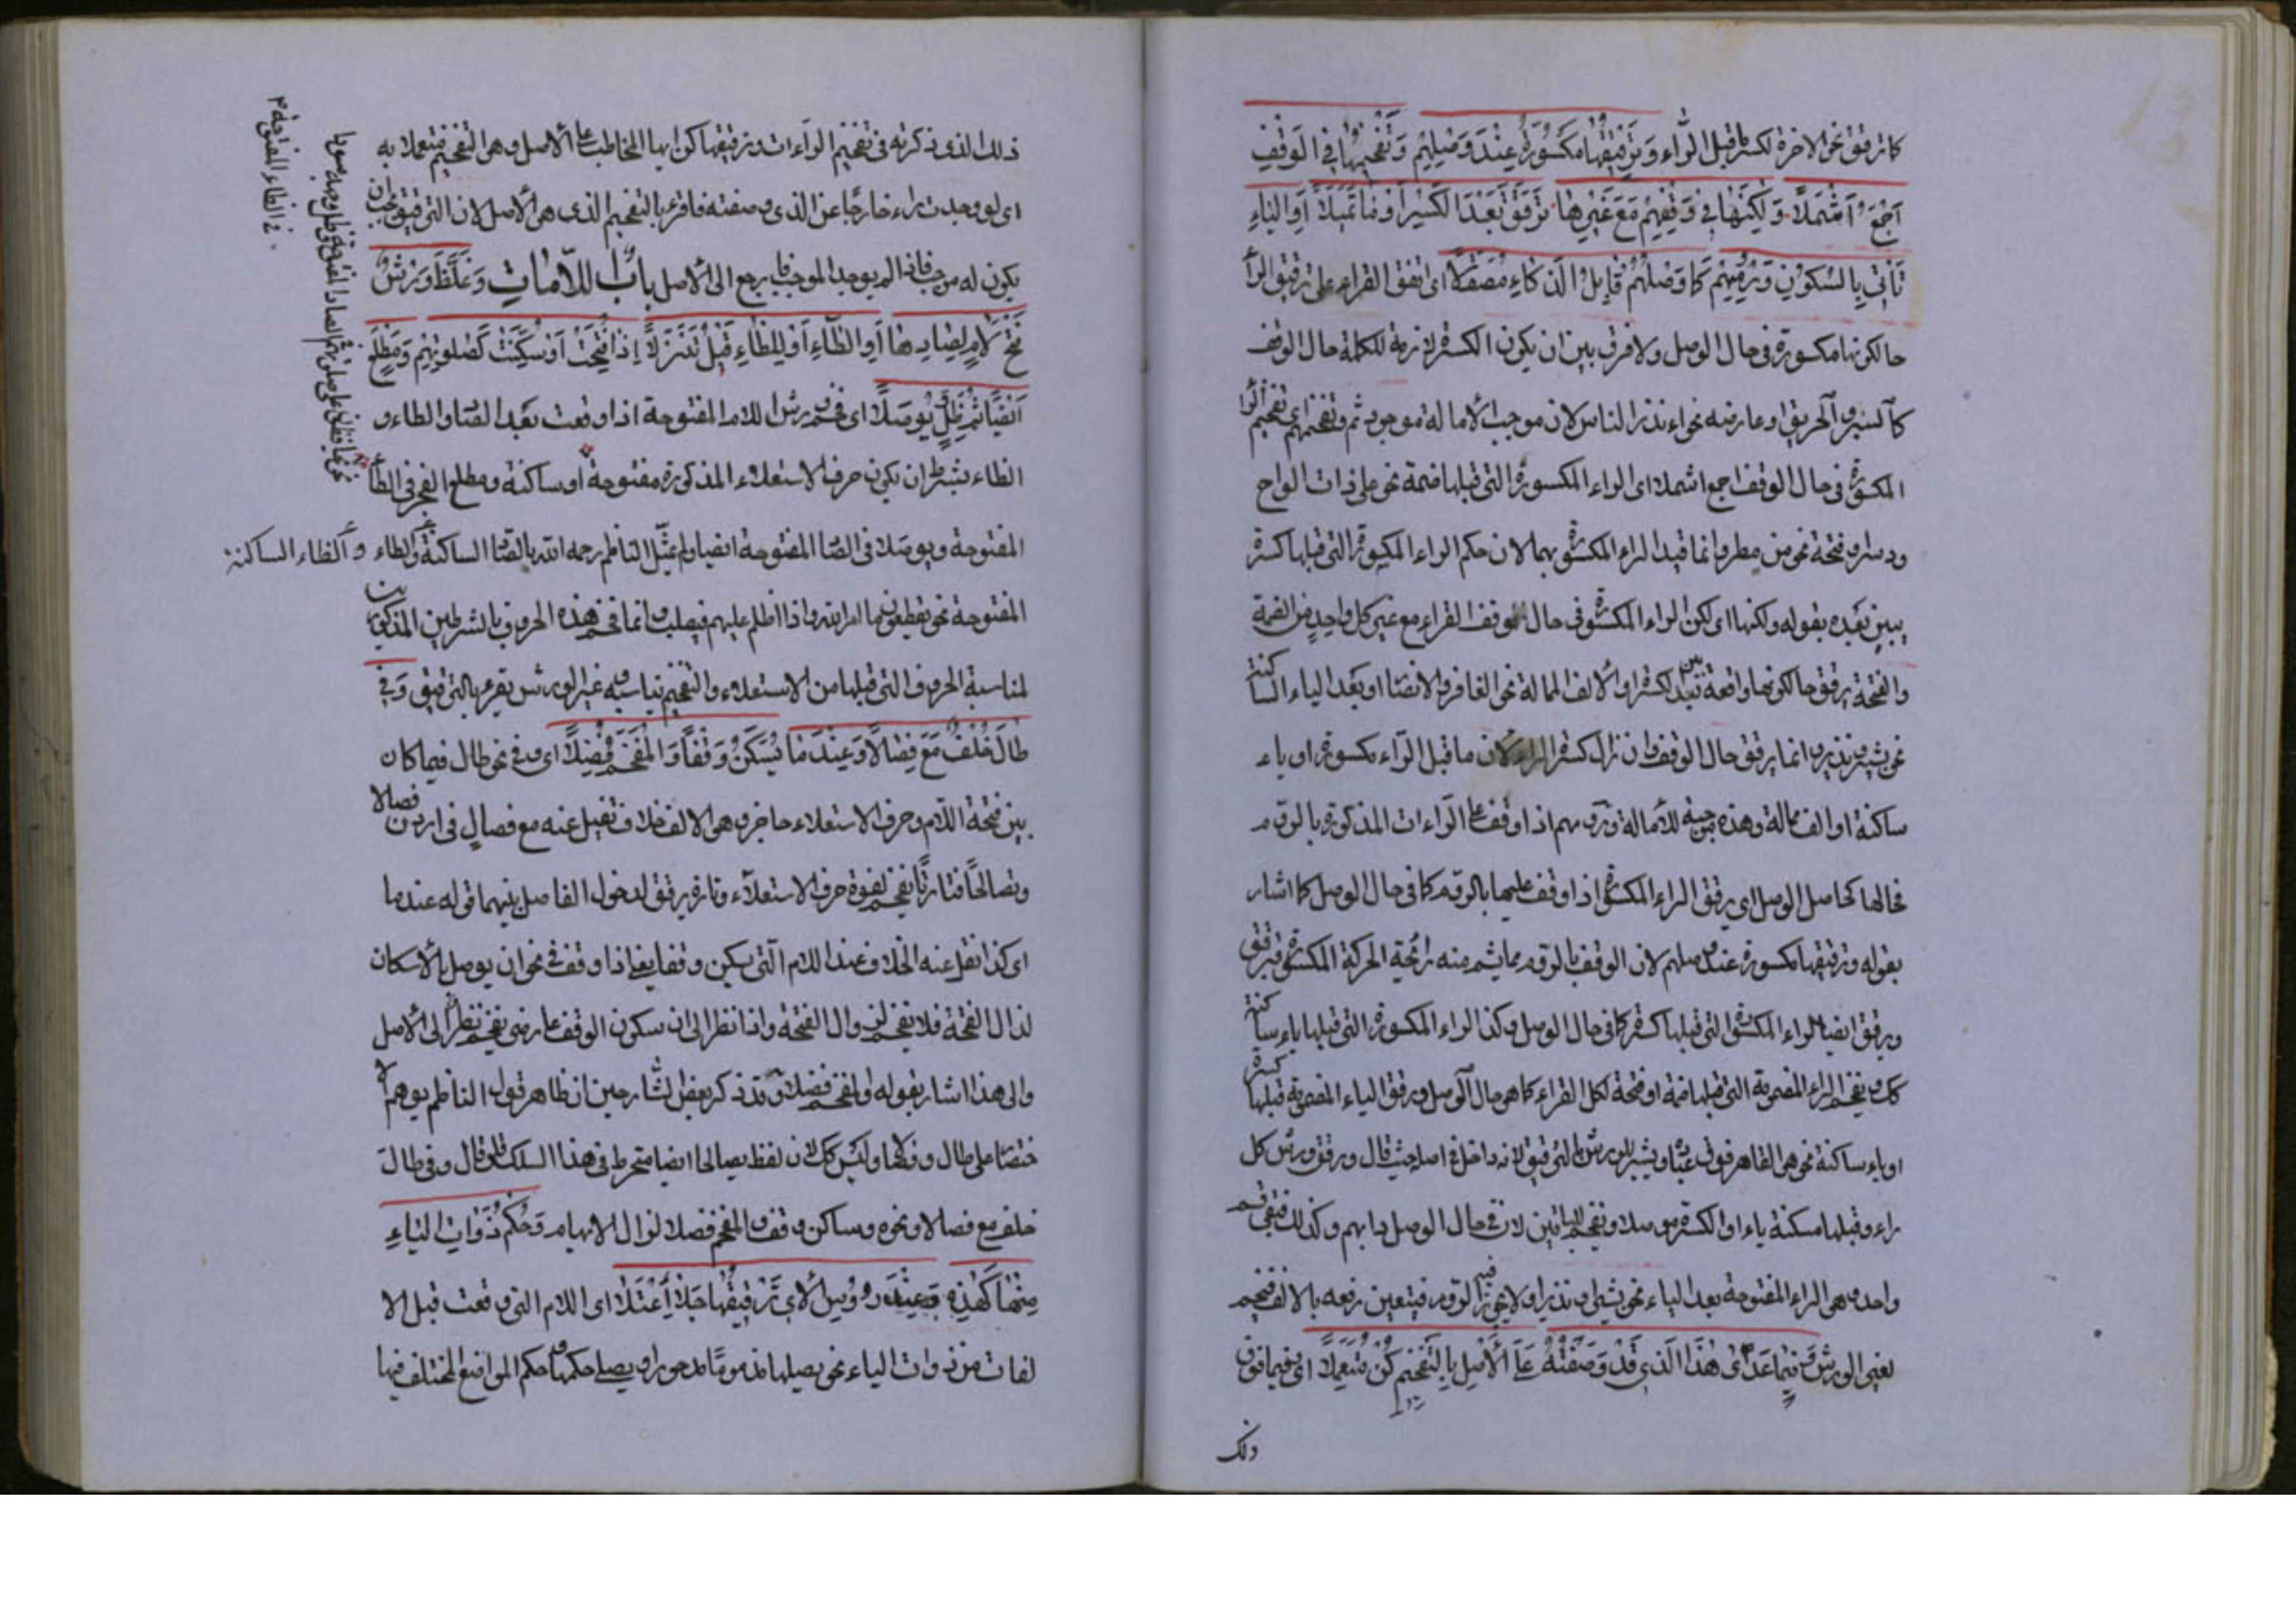 كما ترقق نحو الاخرة لكسر ما قبل الراء وَتَرْقِيقُهَا مَكْسُورَةً عِنْدَ وَصْلِهِمْ وَتَفْخِيمُهَا فِي الْوَقْفِ
اَجْمَعُ اَشْمَلَا وَلٰكِنَّهَا فِي وَقْفِهِمْ مَعَ غَيْرِهَا تُرَقَّقُ بَعْدَ الْكَسْرِ اَوْ مَا تَمَيَّلَا اَوِ الْيَاءِ
تَأْتِي بِالسُّكُونِ وَرَوْمُهُمْ كَمَا وَصْلُهُمْ فَابْلُ الذَّكَاءِ مُصَقَّلَا اى اتفق القراء على ترقيق الراء
حالكونها مكسورة فى حال الوصل ولا فرق بين ان يكون الكسرة لازمة للكلمة حال الوقف
كالسبر والحريق او عارضه نحو انذر الناس لان موجب الامالة موجود ثم وتفخيمها اى تفخيم الراء
المكسورة فى حال الوقف اجمع اشملا اى الراء المكسورة التى قبلها ضمة نحو على ذات الواح
ودسر او فتحة نحو من مطر وانما قيد الراء المكسورة بهما لان حكم الراء المكسورة التى قبلها كسرة
يبين بعده بقوله ولكنها اى لكن الراء المكسورة فى حال الوقف القراء مع غير كل واحد من الضمة
والفتحة يرقق حالكونها واقعة بعد الكسر او الالف الممالة نحو الغافر والانصار او بعد الياء الساكنة
نحو بشير ونذير وانما يرقق حال الوقف وان زال كسرة الراء لان ما قبل الراء مكسورة او ياء
ساكنة او الف ممالة وهذه موجبة للامالة ورومهم اذا وقف على الراءات المذكورة بالروم
فحالها كحاصل الوصل اى يرقق الراء المكسورة اذا وقف عليها بالروم كما فى حال الوصل كما اشار
بقوله وترقيقها مكسورة عند وصلهم لان الوقف بالروم مما يشم منه رائحة الحركة المكسورة فيرقق
ويرقق ايضا الراء المكسورة التى قبلها كسرة كما فى حال الوصل وكذا الراء المكسورة التى قبلها ياء ساكنة
كك ويفخم الراء المضمومة التى قبلها ضمة او فتحة لكل القراء كما هو حال الوصل ويرقق الياء المضمومة قبلها كسرة
او ياء ساكنة نحو هو القاهر فوق عباده وبشير لورش بالترقيق لانه داخل فى اصله حيث قال ورقق ورش كل
راء وقبلها مسكنة ياء او الكسرة موصلا وتفخيم للباقين لان فى حال الوصل دابهم وكذلك فبقى قسم
واحد وهى الراء المفتوحة بعد الياء نحو بشيرا ونذيرا ولا يجئ فيه الروم فيتعين رفعه بالالف فتفخيم
لغير الورش وَفِيمَا عَدَا هٰذَا الَّذِي قَدْ وَصَفْتُهُ عَلَى الْاَصْلِ بِالتَّفْخِيمِ كُنْ مُتَعَمِّلَا اى وفيما فوق
ذلك
ذلك الذى ذكرته فى تفخيم الراءات وترقيقها كن ايها المخاطب على الاصل وهو التفخيم متعملا به
اى لو وجدت راء خارجًا عن الذى وصفته فاقرء بالتفخيم الذى هو الاصل لان الترقيق يجب ان
يكون له موجب فاذا لم يوجد الموجب يرجع الى الاصل بابُ اللّامَاتِ وَغَلَّظَ وَرْشٌ
فَتْحَ لَامٍ لِصَادِهَا اَوِ الطَّاءِ اَوْ لِلظَّاءِ قَبْلُ تَنَزُّلَا اِذَا فُتِحَتْ اَوْ سُكِّنَتْ كَصَلٰوتِهِمْ وَمَطْلَعِ
اَيْضًا ثُمَّ ظَلَّ وَيُوصَلَا اى فخم ورش اللام المفتوحة اذا وقعت بعد الصاد والطاء و
الظاء بشرط ان يكون حرف الاستعلاء المذكورة مفتوحة او ساكنة ومطلع الفجر فى الطاء
المفتوحة ويوصلا فى الصاد المفتوحة ايضا ولم يمثل الناظم رحمه الله بالصاد الساكنة والطاء والظاء الساكنة
المفتوحة نحو يقطعون ما امر الله واذا اظلم عليهم فيصلب وانما فخم هذه الحروف بالشرطين المذكورين
لمناسبة الحروف التى قبلها من الاستعلاء والتفخيم يناسبه وغير الورش يقرء بالترقيق وَفِي
طَالَ خُلْفٌ مَعَ فِصَالًا وَعِنْدَمَا يُسَكَّنُ وَقْفًا وَالْمُفَخَّمُ فُضِّلَا اى وفى نحو طال فيما كان
بين فتحة اللام وحرف الاستعلاء حاجز وهو الالف خلاف نقل عنه مع فصال فى ارادن فصالا
وتصالحا فتارة يفخم لقوة حرف الاستعلاء وتارة يرقق لدخول الفاصل بينهما قوله عندما
اى كذا نقل عنه الخلاف عند اللام التى يسكن وقفا يعنى اذا وقف فى نحو ان يوصل بالاسكان
لذال الفتحة فلا يفخم لزوال الفتحة واذا نظر الى ان سكون الوقف عارض يفخم نظرا الى الاصل
والى هذا اشار بقوله والمفخم فضلا وقد ذكر بعض الشارحين ان ظاهر قول الناظم يوهم الا
ختصاص على طال وفصالا وليس كك لان لفظ يصالحا ايضا منخرط فى هذا السلك فلو قال وفى طال
خلف مع فصالا ونحوه وساكن وقف والمفخم فضلا لزال الايهام وَحُكْمُ ذَوَاتِ الْيَاءِ
مِنْهَا كَهٰذِهِ وَعِنْدَ رُؤُوسِ الْاٰيِ تَرْقِيقُهَا اعْتَلَا اى اللام التى وقعت قبل الا
لفات من ذوات الياء نحو يصليها مذموما مدحورا ويصلى حكمها حكم المواضع المختلف فيها